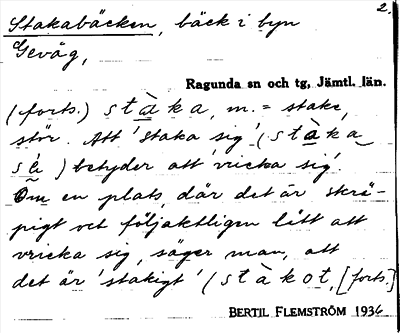 Stakabäcken, bäck i byn
2.
Gevåg,
Ragunda sn och tg, Jämtl. län.
(forts.) stàka, m. = stake,
stör. Att 'staka sig' (stàka
sé) betyder att 'vricka sig'.
Om en plats, där det är skrä-
pigt och följaktligen lätt att
vricka sig, säger man, att
det är 'stakigt' (stàkot, [forts.]
BERTIL FLEMSTRÖM 1936